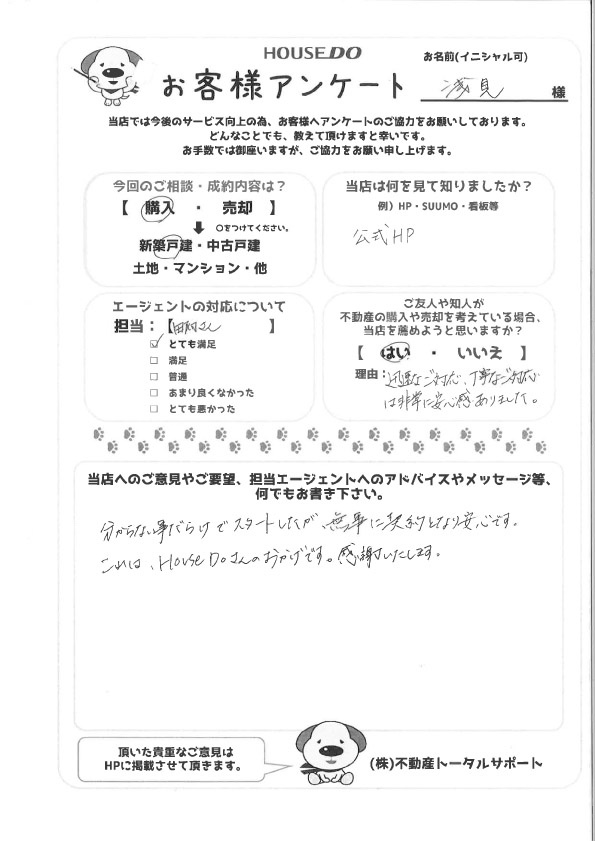 HOUSEDO
お客様アンケート
お名前(イニシャル可)
浅見 様
当店では今後のサービス向上の為、お客様へアンケートのご協力をお願いしております。
どんなことでも、教えて頂けますと幸いです。
お手数では御座いますが、ご協力をお願い申し上げます。
今回のご相談・成約内容は?
【 購入 ・ 売却 】
○をつけてください。
新築戸建・中古戸建
土地・マンション・他
当店は何を見て知りましたか?
例)HP・SUUMO・看板等
公式HP
エージェントの対応について
担当:【 さん 】
とても満足
満足
普通
あまり良くなかった
とても悪かった
ご友人や知人が
不動産の購入や売却を考えている場合、
当店を薦めようと思いますか?
【 はい ・ いいえ 】
理由:迅速なご対応、丁寧なご対応
は非常に安心感ありました。
当店へのご意見やご要望、担当エージェントへのアドバイスやメッセージ等、
何でもお書き下さい。
分からない事だらけでスタートしたが、無事に契約となり安心です。
これは、House Doさんのおかげです。感謝いたします。
頂いた貴重なご意見は
HPに掲載させて頂きます。
(株)不動産トータルサポート